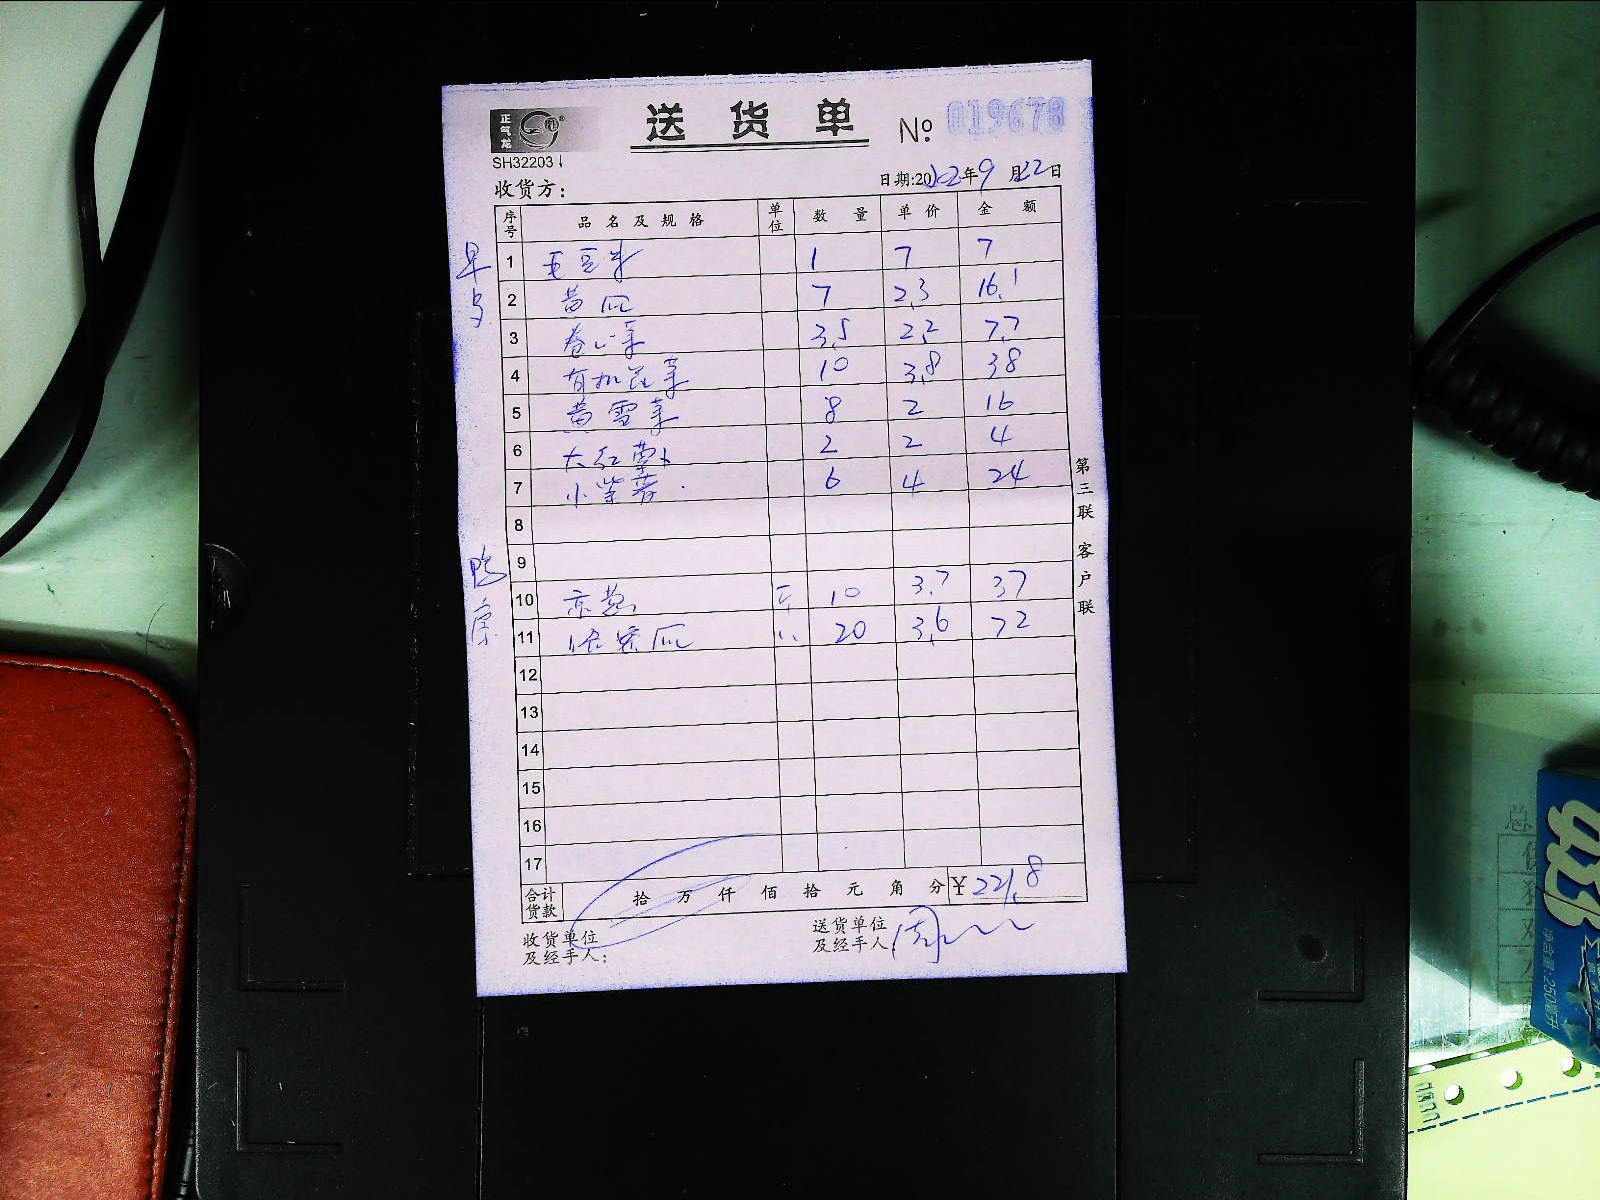 正气龙
送货单
№ 019678
SH32203
收货方：
日期:20 年9月22日
序号 品名及规格 单位 数量 单价 金额
早
1 毛豆米 1 7 7
2 黄瓜 7 2.3 16.1
3 卷心菜 3.5 2.2 7.7
4 有机花菜 10 3.8 38
5 黄雪菜 8 2 16
6 大红萝卜 2 2 4
7 小紫薯 6 4 24
8
9
10 10 3.7 37
11 瓜 20 3.6 72
12
13
14
15
16
17
第三联 客户联
合计货款 拾 万 仟 佰 拾 元 角 分 ¥221.8
收货单位及经手人：
送货单位及经手人 周
净含量:250毫升
总